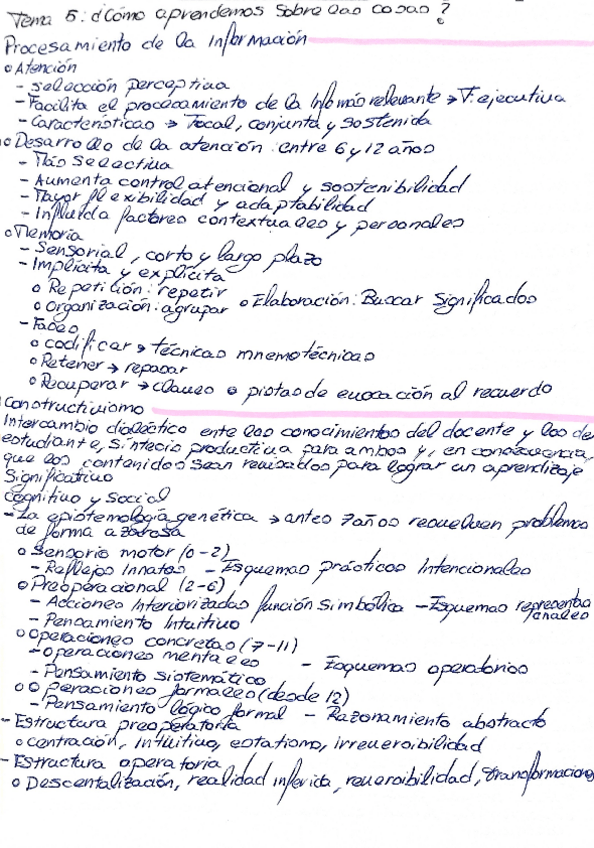 Tema 5: ¿Cómo aprendemos sobre las cosas?
Procesamiento de la Información
o Atención
- Selección perceptiva
- Facilita el procesamiento de la Info más relevante → F. ejecutiva
- Características → Focal, conjunta y sostenida
o Desarrollo de la atención entre 6 y 12 años
- Más selectiva
- Aumenta control atencional y sostenibilidad
- Mayor flexibilidad y adaptabilidad
- Influida factores contextuales y personales
o Memoria
- Sensorial, corto y largo plazo
- Implícita y explícita
o Repetición: repetir
o Organización: agrupar o Elaboración: Buscar significados
- Fases
o codificar → técnicas mnemotécnicas
o Retener → repasar
o Recuperar → claves o pistas de evocación al recuerdo
Constructivismo
Intercambio dialéctico ente los conocimientos del docente y los de
estudiante, síntesis productiva para ambos y, en consecuencia,
que los contenidos sean revisados para lograr un aprendizaje
Significativo
Cognitivo y social
- La epistemología genética → antes 7 años resuelven problemas
de forma azarosa
o Sensorio motor (0-2)
- Reflejos Innatos - Esquemas prácticos Intencionales
o Preoperacional (2-6)
- Acciones Interiorizadas función simbólica - Esquemas representa
cionales
- Pensamiento Intuitivo
o Operaciones concretas (7-11)
- Operaciones mentales - Esquemas operatorios
- Pensamiento sistemático
o Operaciones formales (desde 12)
- Pensamiento lógico formal - Razonamiento abstracto
- Estructura preoperatoria
o centración, Intuitivo, estatismo, irreversibilidad
- Estructura operatoria
o Descentalización, realidad inferida, reversibilidad, transformaciones